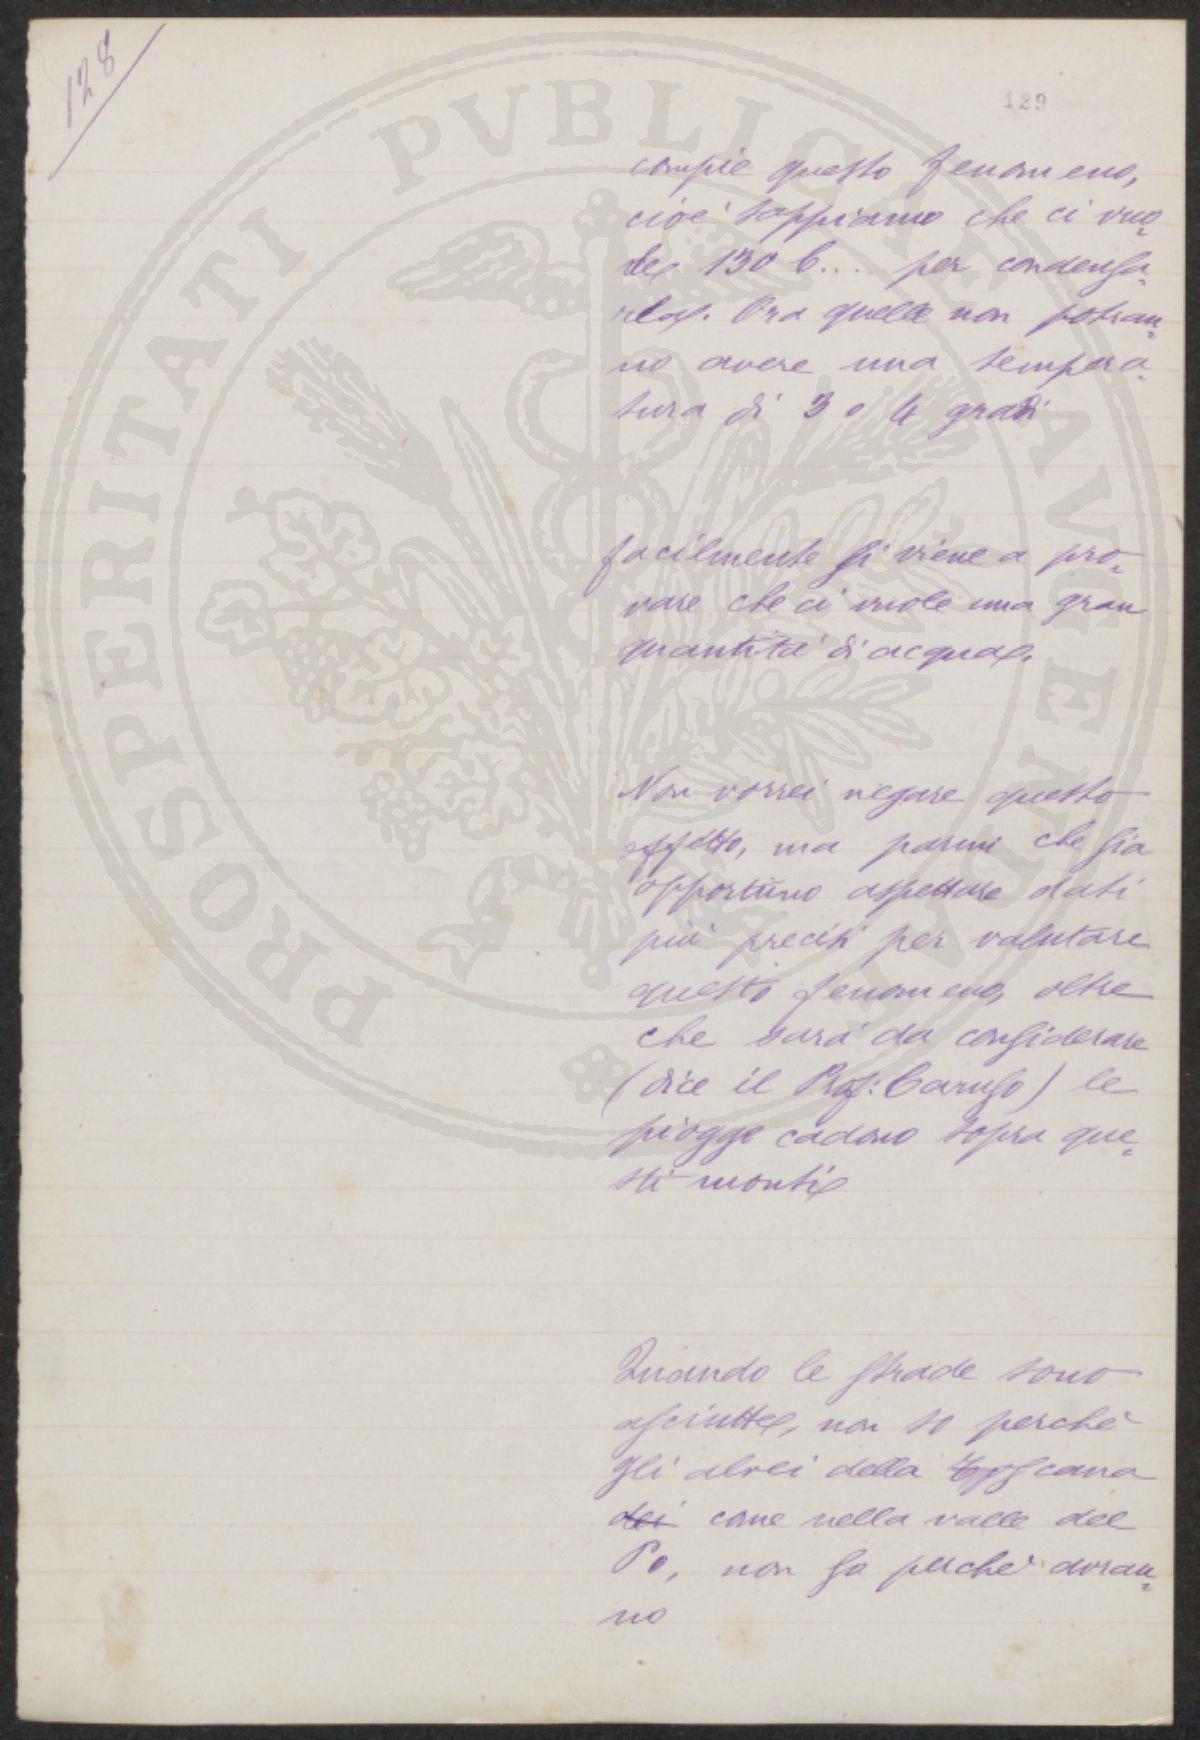 128
129
compie questo fenomeno,
cioè sappiamo che ci vuo=
le 130 C.... per condensa=
rla. Ora quelle non potran=
no avere una tempera=
tura di 3 o 4 gradi
facilmente si viene a pro=
vare che ci vuole una gran
quantità di acqua.
Non vorrei negare questo
effetto, ma parmi che sia
opportuno aspettare dati
più precisi per valutare
questo fenomeno, oltre
che sarà da considerare
(dice il Prof: Caruso) le
piogge cadono sopra que=
sti monti
Quando le strade sono
asciutte, non so perchè
gli alvei della Toscana
dei come nella valle del
Po, non so perchè avran=
no
PROSPERITATI PVBLICAE AVGENDAE